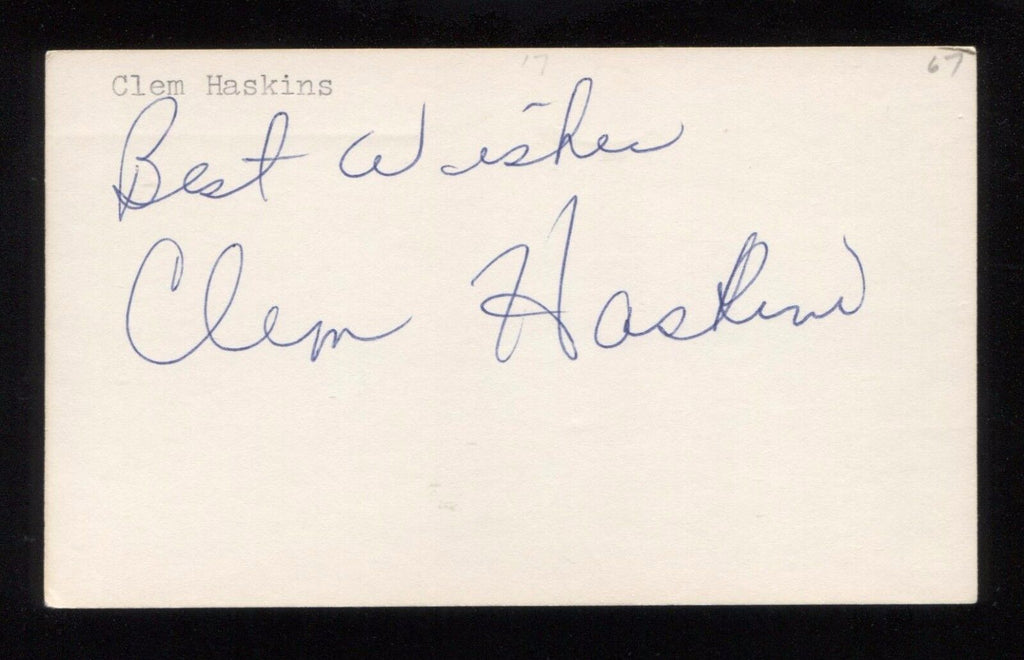 17 67
Clem Haskins
Best Wishes
Clem Haskins